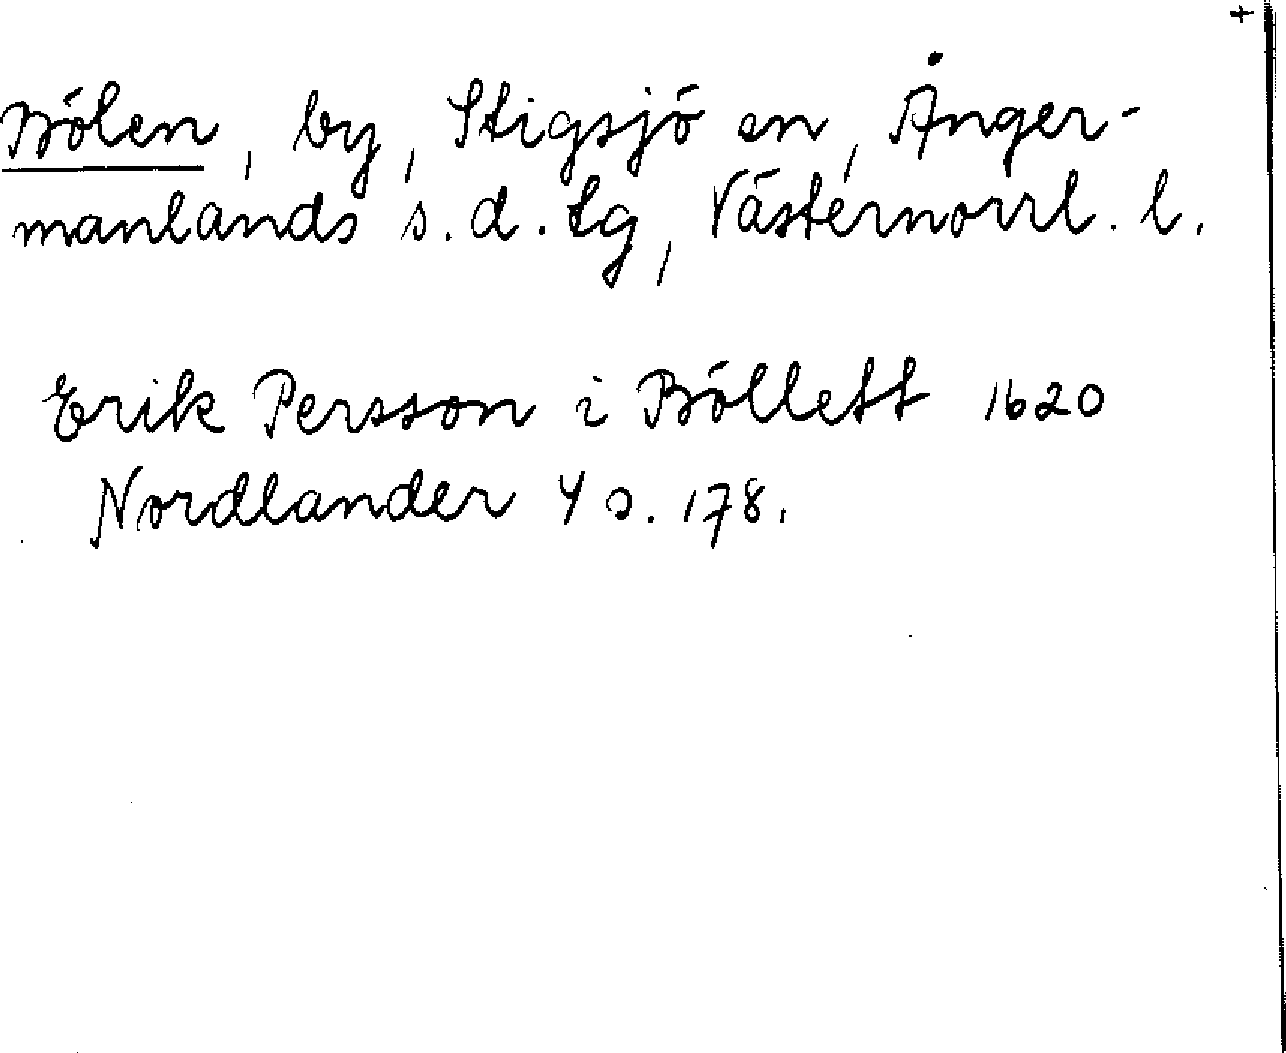 +
Bölen, by, Stigsjö sn, Ånger-
manlands s. d. tg, Västernorrl. l.
Erik Persson i Böllett 1620
Nordlander 4 s. 178.